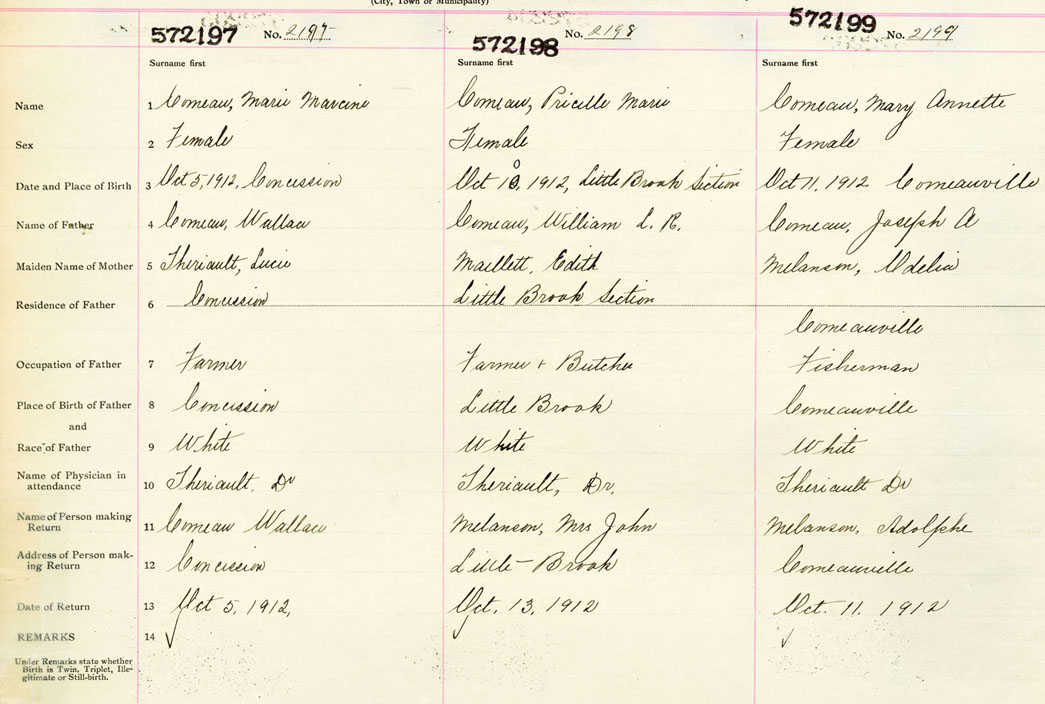 (City, Town or Municipality)
572197 No. 2197 572198 No. 2198 572199 No. 2199
Surname first Surname first Surname first
Name 1 Comeau, Marie Marcine Comeau, Pricille Marie Comeau, Mary Annette
Sex 2 Female Female Female
Date and Place of Birth 3 Oct 5, 1912, Concission Oct 10, 1912, Little Brook Section Oct 11. 1912 Comeauville
Name of Father 4 Comeau, Wallace Comeau, William L. R. Comeau, Joseph A
Maiden Name of Mother 5 Theriault, Lucie Maillett, Edith Melanson, Odelia
Residence of Father 6 Concission Little Brook Section
Comeauville
Occupation of Father 7 Farmer Farmer + Butcher Fisherman
Place of Birth of Father 8 Concission Little Brook Comeauville
and
Race of Father 9 White White White
Name of Physician in
attendance 10 Theriault. Dr Theriault, Dr. Theriault Dr
Name of Person making
Return 11 Comeau Wallace Melanson, Mrs John Melanson, Adolphe
Address of Person mak-
ing Return 12 Concission Little-Brook Comeauville
Date of Return 13 Oct 5, 1912, Oct. 13, 1912 Oct. 11. 1912
REMARKS 14
Under Remarks state whether
Birth is Twin, Triplet, Ille-
gitimate or Still-birth.